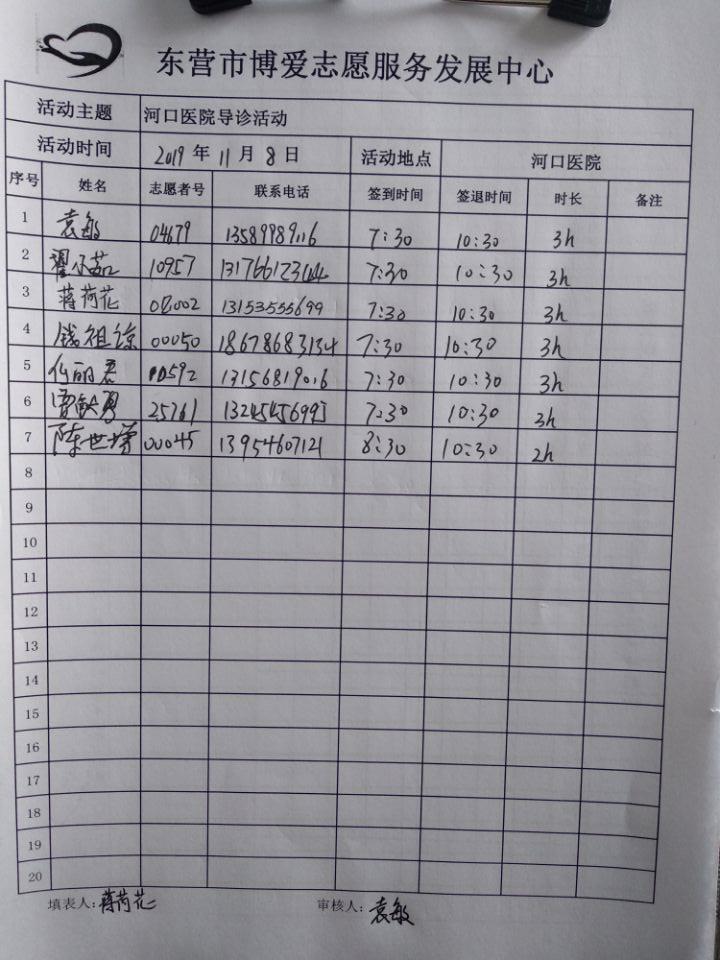 东营市博爱志愿服务发展中心
活动主题 河口医院导诊活动
活动时间 2019年11月8日 活动地点 河口医院
序号 姓名 志愿者号 联系电话 签到时间 签退时间 时长 备注
1 袁敏 04679 13589989116 7:30 10:30 3h
2 翟小茹 10957 13176612344 7:30 10:30 3h
3 蒋荷花 13153555699 7:30 10:30 3h
4 钱祖琼 00050 18678683134 7:30 10:30 3h
5 00592 13156819016 7:30 10:30 3h
6 25761 13245456993 7:30 10:30 3h
7 陈世增 00045 13954607121 8:30 10:30 2h
8
9
10
11
12
13
14
15
16
17
18
19
20
填表人:蒋荷花 审核人:袁敏